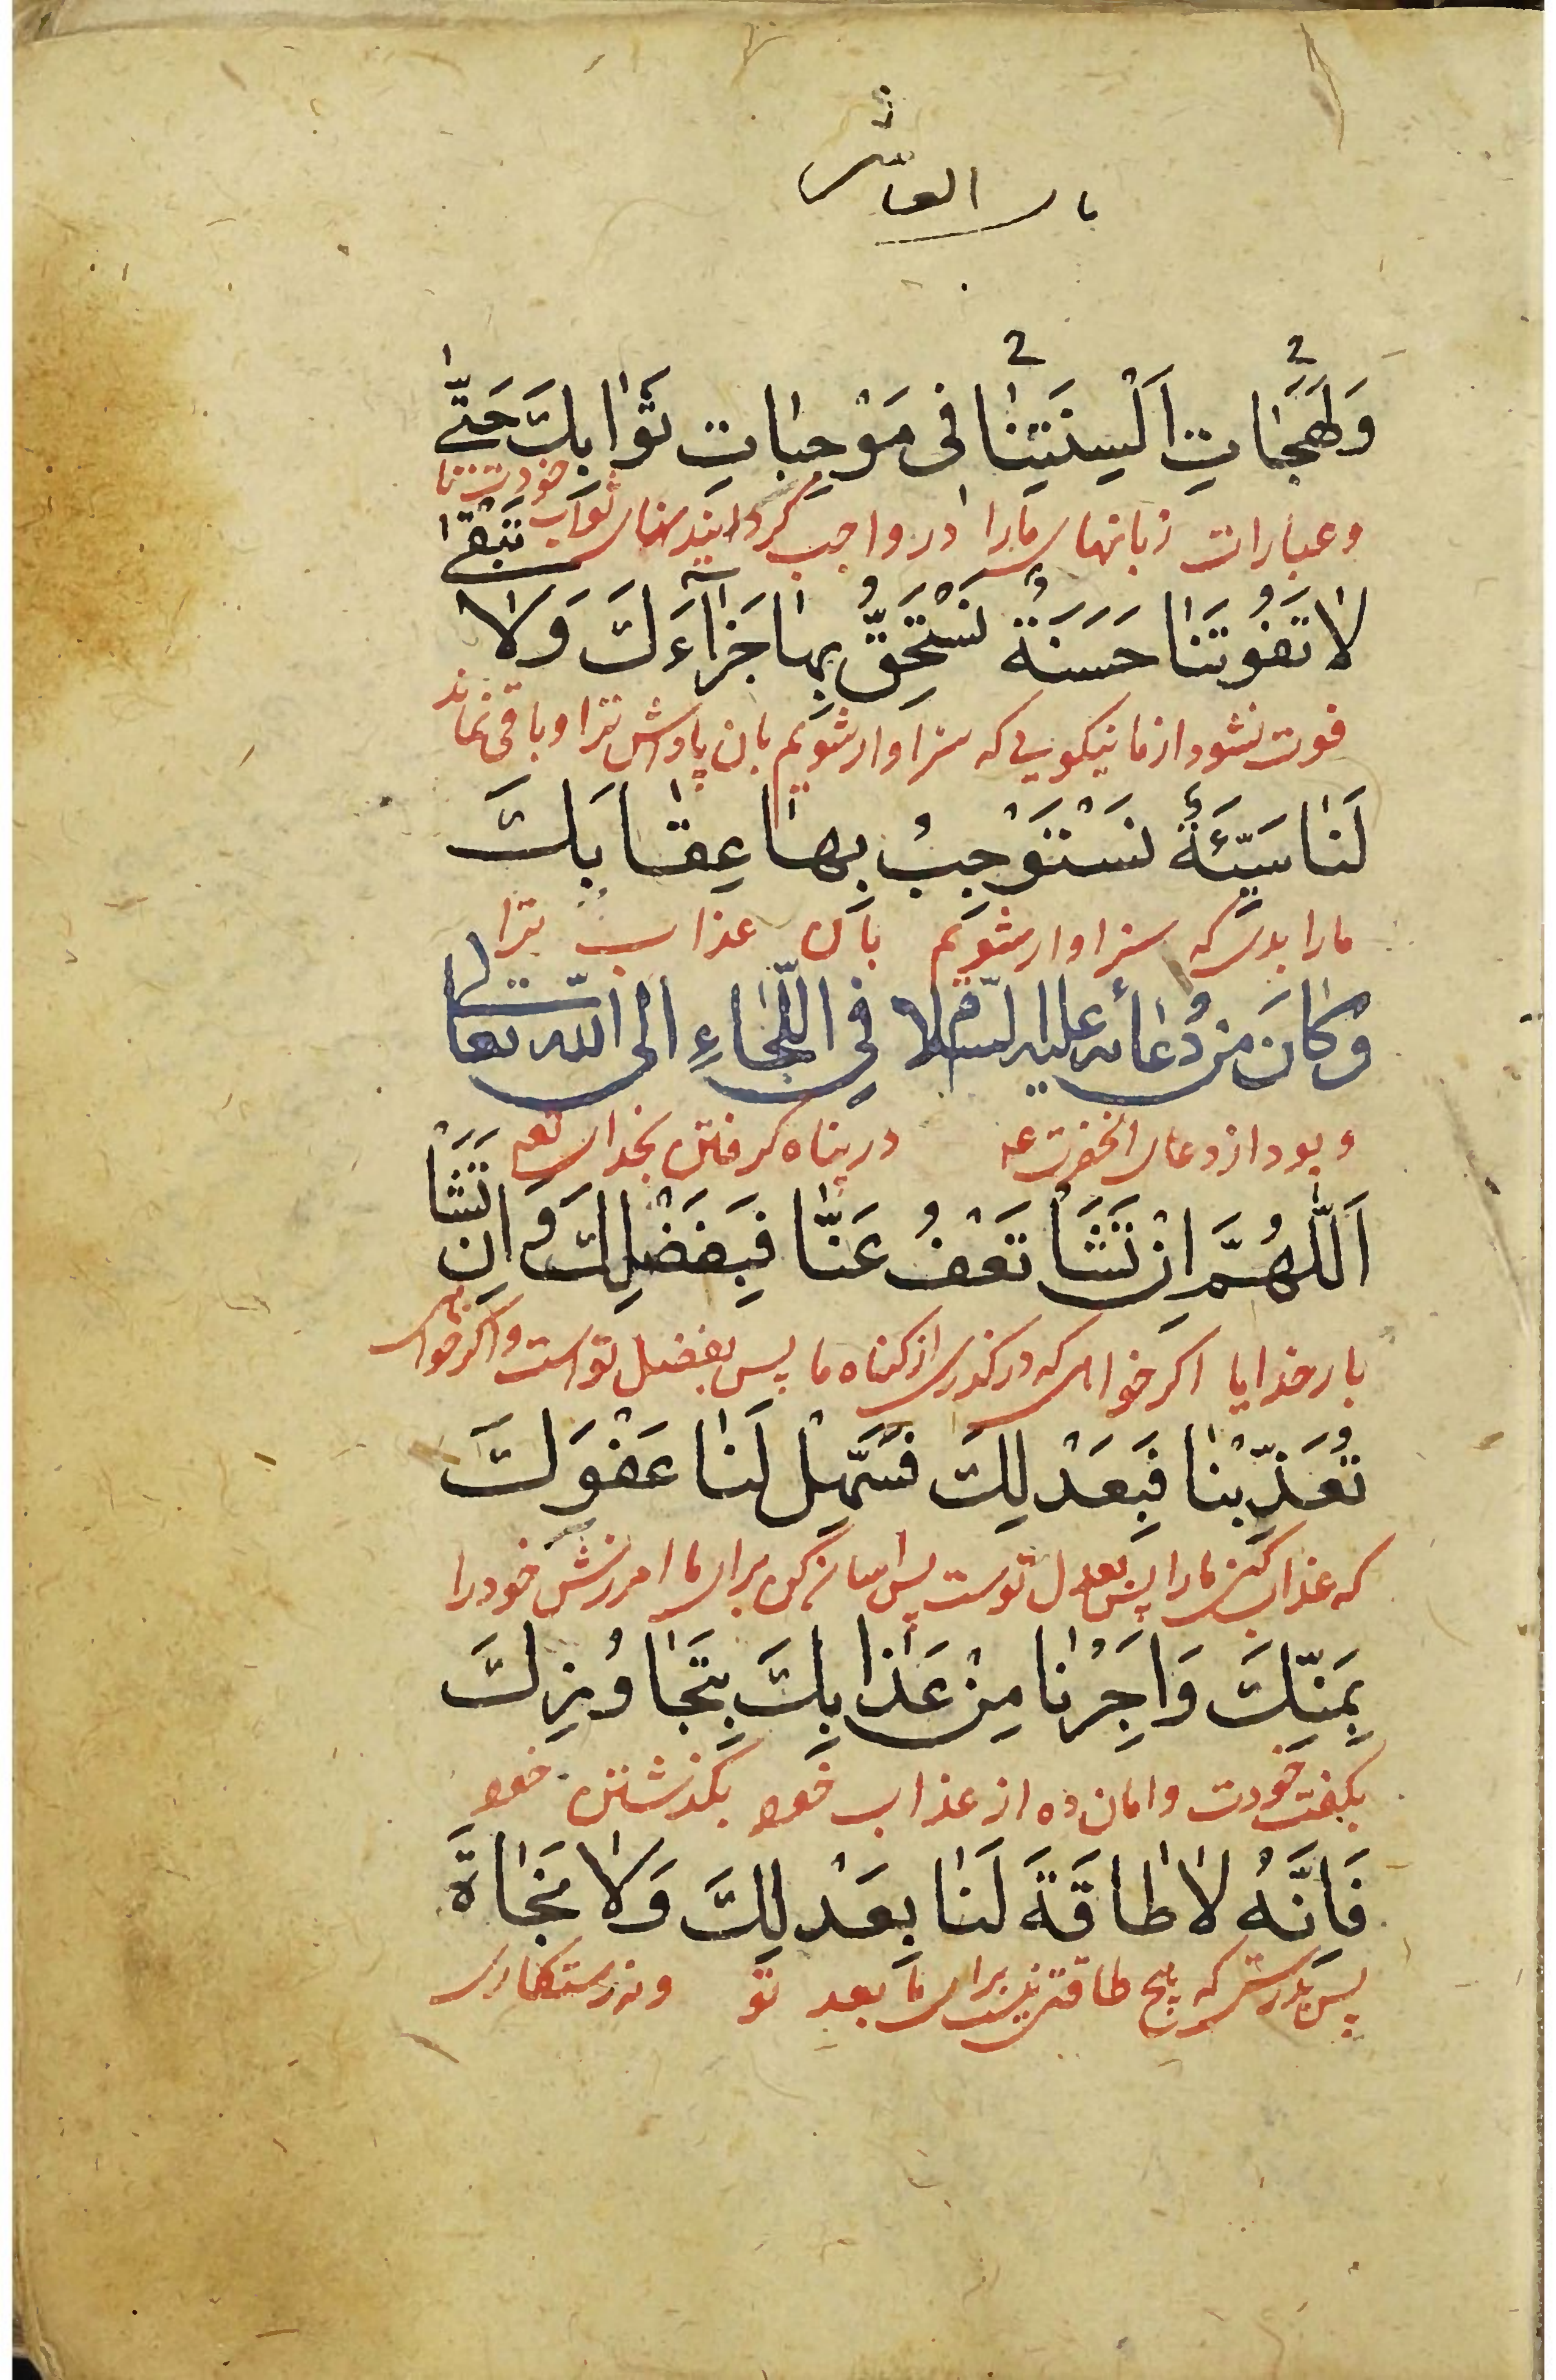 باب العاشر
وَلَهَجٰاتِ اَلْسِنَتِنٰا فى مَوْجِبٰاتِ ثَوٰابِكَ حَتّٰى
وعبارات زبانهاى مارا در واجب گردانيدنهاى ثواب خودت تا
لٰا تَفُوتَنٰا حَسَنَةٌ نَسْتَحِقُّ بِهٰا جَزٰآءَكَ وَلٰا تَبْقٰى
فوت نشود از ما نيكويى كه سزاوار شويم بان پاداش ترا و باقى نماند
لَنٰا سَيِّئَةٌ نَسْتَوْجِبُ بِهٰا عِقٰابَكَ
مارا بدى كه سزاوار شويم بآن عذاب ترا
وَكٰانَ مِنْ دُعٰائه عليه السّلام فِي اللَّجٰاءِ الى الله تعالى
و بود از دعاى انحضرت عه در پناه كرفتن بخداى تعه
اَللّٰهُمَّ اِنْ تَشَا تَعْفُ عَنّٰا فَبِفَضْلِكَ وَ اِنْ تَشَا
بار خدايا اكر خواهى كه در كذرى از كناه ما پس بفضل تو است و اكر خواهى
تُعَذِّبْنٰا فَبِعَدْلِكَ فَسَهِّلْ لَنٰا عَفْوَكَ
كه عذاب كنى مارا پس بعدل توست پس اسان كن براى ما امرزش خود را
بِمَنِّكَ وَاَجِرْنٰا مِنْ عَذٰابِكَ بِتَجٰاوُزِكَ
خودت و امان ده از عذاب خود بكذشتن خود
فَاِنَّهُ لٰا طٰاقَةَ لَنٰا بِعَدْلِكَ وَلٰا نَجٰاةَ
پس بدرستى كه هيچ طاقتى نيست براى ما بعد تو و نه رستكارى